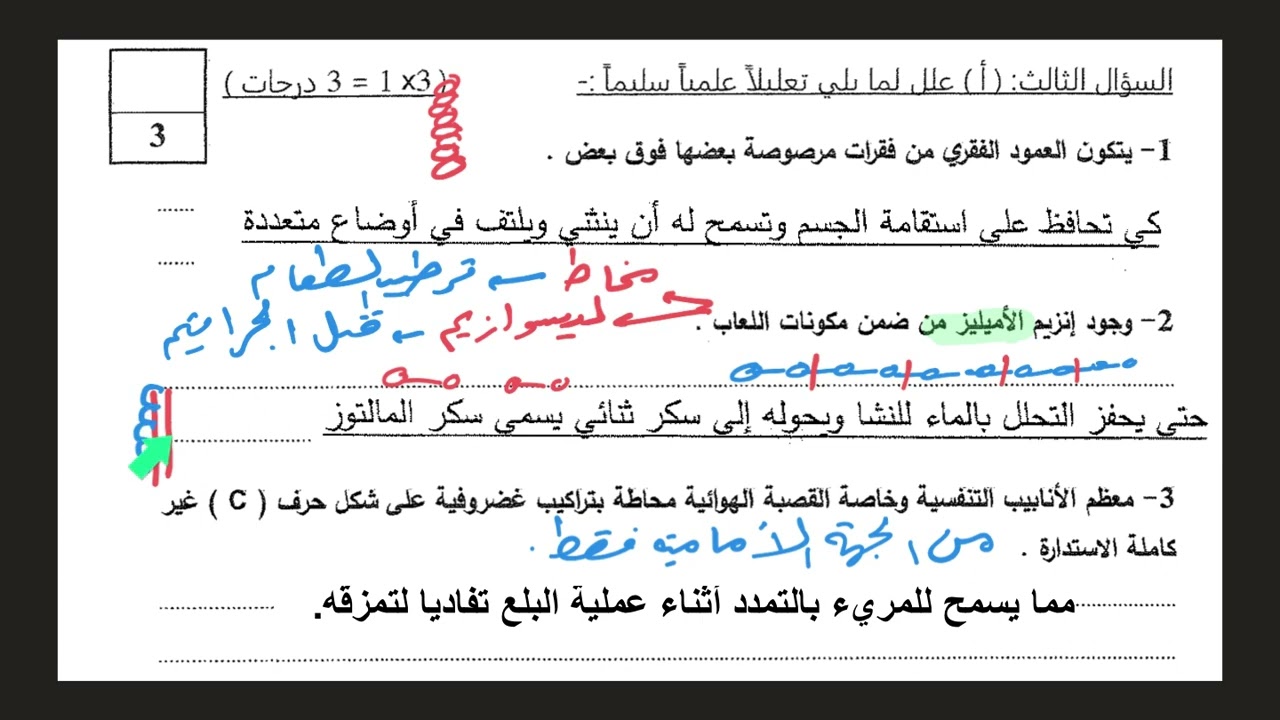 السؤال الثالث: (أ) علل لما يلي تعليلاً علمياً سليماً :- (3× 1 = 3 درجات )
3
1- يتكون العمود الفقري من فقرات مرصوصة بعضها فوق بعض .
كي تحافظ على استقامة الجسم وتسمح له أن ينثني ويلتف في أوضاع متعددة
مخاط ← ترطيب الطعام
2- وجود إنزيم الأميليز من ضمن مكونات اللعاب .
ليسوازيم ← قتل الجراثيم
حتى يحفز التحلل بالماء للنشا ويحوله إلى سكر ثنائي يسمى سكر المالتوز
3- معظم الأنابيب التنفسية وخاصة القصبة الهوائية محاطة بتراكيب غضروفية على شكل حرف ( C ) غير
كاملة الاستدارة .
من الجهة الأمامية فقط .
مما يسمح للمريء بالتمدد أثناء عملية البلع تفاديا لتمزقه.